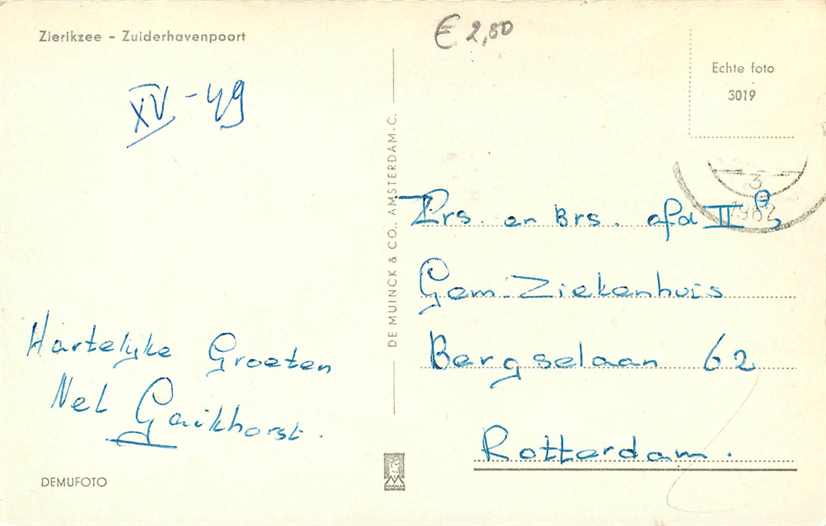 Zierikzee - Zuiderhavenpoort
€ 2,50
XV - 49
Echte foto
3019
3
1962
DE MUINCK & CO. AMSTERDAM-C.
Zrs. en Brs. afd II B
Gem. Ziekenhuis
Bergselaan 62
Rotterdam.
Hartelijke Groeten
Nel Gaikhorst.
DEMUFOTO